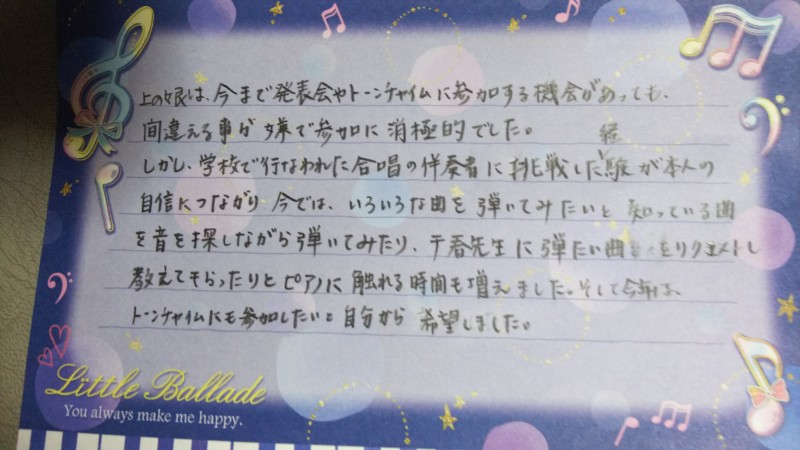 上の娘は、今まで発表会やトーンチャイムに参加する機会があっても、
間違える事が嫌で参加に消極的でした。
しかし、学校で行なわれた合唱の伴奏者に挑戦した経験が本人の
自信につながり今では、いろいろな曲を弾いてみたいと知っている曲
を音を探しながら弾いてみたり、千春先生に弾たい曲をリクエストし
教えてもらったりとピアノに触れる時間も増えました。そして今年は、
トーンチャイムにも参加したいと自分から希望しました。
Little Ballade
You always make me happy.